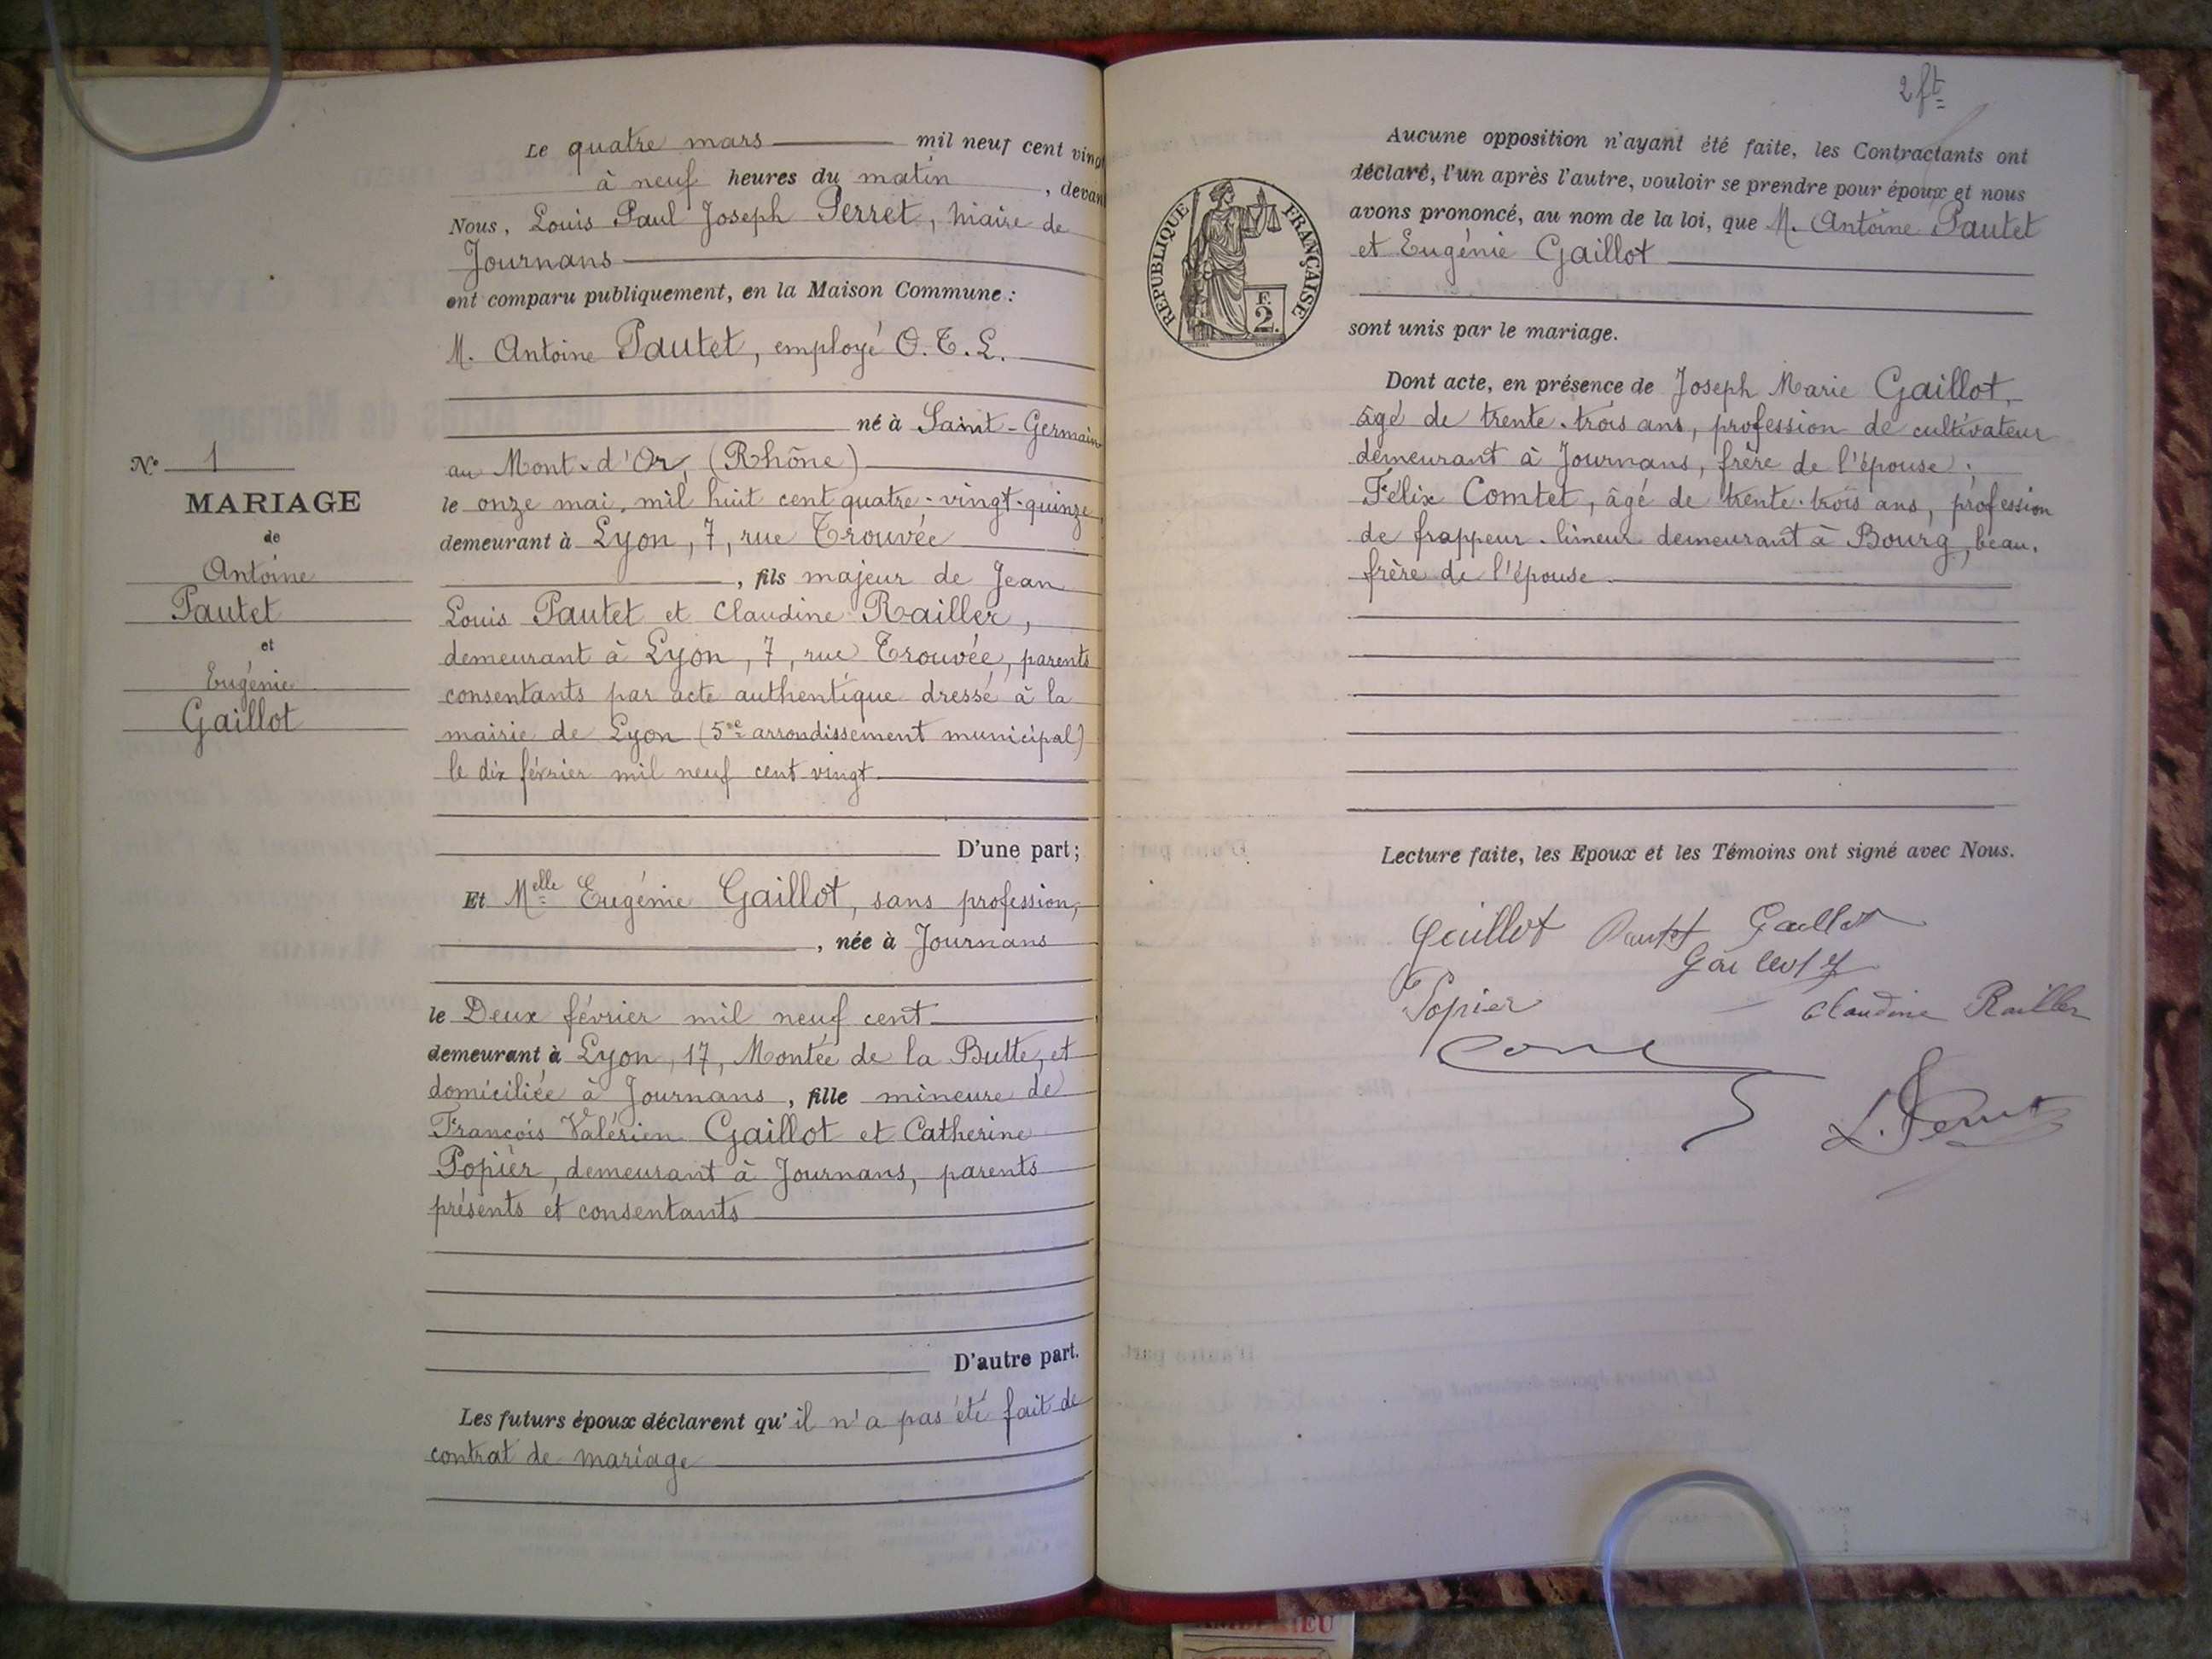 Le quatre mars mil neuf cent vingt
à neuf heures du matin, devant
Nous, Louis Paul Joseph Perret, Maire de
Journans
ont comparu publiquement, en la Maison Commune :
M. Antoine Pautet, employé O.T.L.
né à Saint-Germain
au Mont-d'Or (Rhône)
le onze mai mil huit cent quatre-vingt-quinze
demeurant à Lyon, 7, rue Trouvée
, fils majeur de Jean
Louis Pautet et Claudine Railler,
demeurant à Lyon, 7, rue Trouvée, parents
consentants par acte authentique dressé à la
mairie de Lyon (5me arrondissement municipal)
le dix février mil neuf cent vingt
D'une part;
Et Melle Eugénie Gaillot, sans profession,
, née à Journans
le Deux février mil neuf cent
demeurant à Lyon, 17, Montée de la Butte, et
domiciliée à Journans, fille mineure de
François Valérien Gaillot et Catherine
Popier, demeurant à Journans, parents
présents et consentants
D'autre part.
Les futurs époux déclarent qu'il n'a pas été fait de
contrat de mariage
No 1
MARIAGE
de
Antoine
Pautet
et
Eugénie
Gaillot
2 ft
Aucune opposition n'ayant été faite, les Contractants ont
déclaré, l'un après l'autre, vouloir se prendre pour époux et nous
avons prononcé, au nom de la loi, que M. Antoine Pautet
et Eugénie Gaillot
sont unis par le mariage.
REPUBLIQUE FRANÇAISE
F.
2.
Dont acte, en présence de Joseph Marie Gaillot,
âgé de trente-trois ans, profession de cultivateur
demeurant à Journans, frère de l'épouse.
Félix Comtet, âgé de trente-trois ans, profession
de frappeur-limeur demeurant à Bourg, beau-
frère de l'épouse.
Lecture faite, les Epoux et les Témoins ont signé avec Nous.
Gaillot Pautet Gaillot
Gaillot
Popier
Claudine Railler
L. Perret